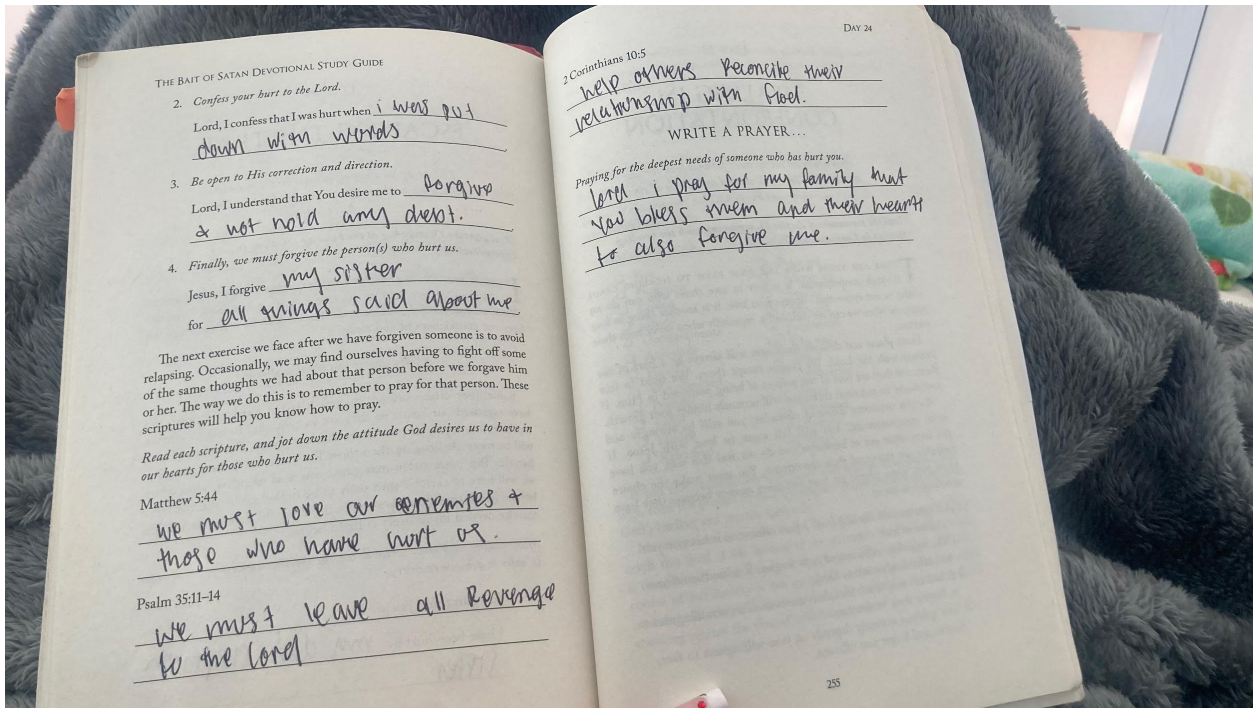 THE BAIT OF SATAN DEVOTIONAL STUDY GUIDE
2. Confess your hurt to the Lord.
Lord, I confess that I was hurt when i was put
down with words.
3. Be open to His correction and direction.
Lord, I understand that You desire me to forgive
& not hold any debt.
4. Finally, we must forgive the person(s) who hurt us.
Jesus, I forgive my sister
for all things said about me.
The next exercise we face after we have forgiven someone is to avoid
relapsing. Occasionally, we may find ourselves having to fight off some
of the same thoughts we had about that person before we forgave him
or her. The way we do this is to remember to pray for that person. These
scriptures will help you know how to pray.
Read each scripture, and jot down the attitude God desires us to have in
our hearts for those who hurt us.
Matthew 5:44
we must love our enemies &
those who have hurt us.
Psalm 35:11–14
we must leave all Revenge
to the Lord
DAY 24
2 Corinthians 10:5
help others Reconcile their
relationship with God.
WRITE A PRAYER…
Praying for the deepest needs of someone who has hurt you.
lord i pray for my family that
You bless them and their hearts
to also forgive me.
255